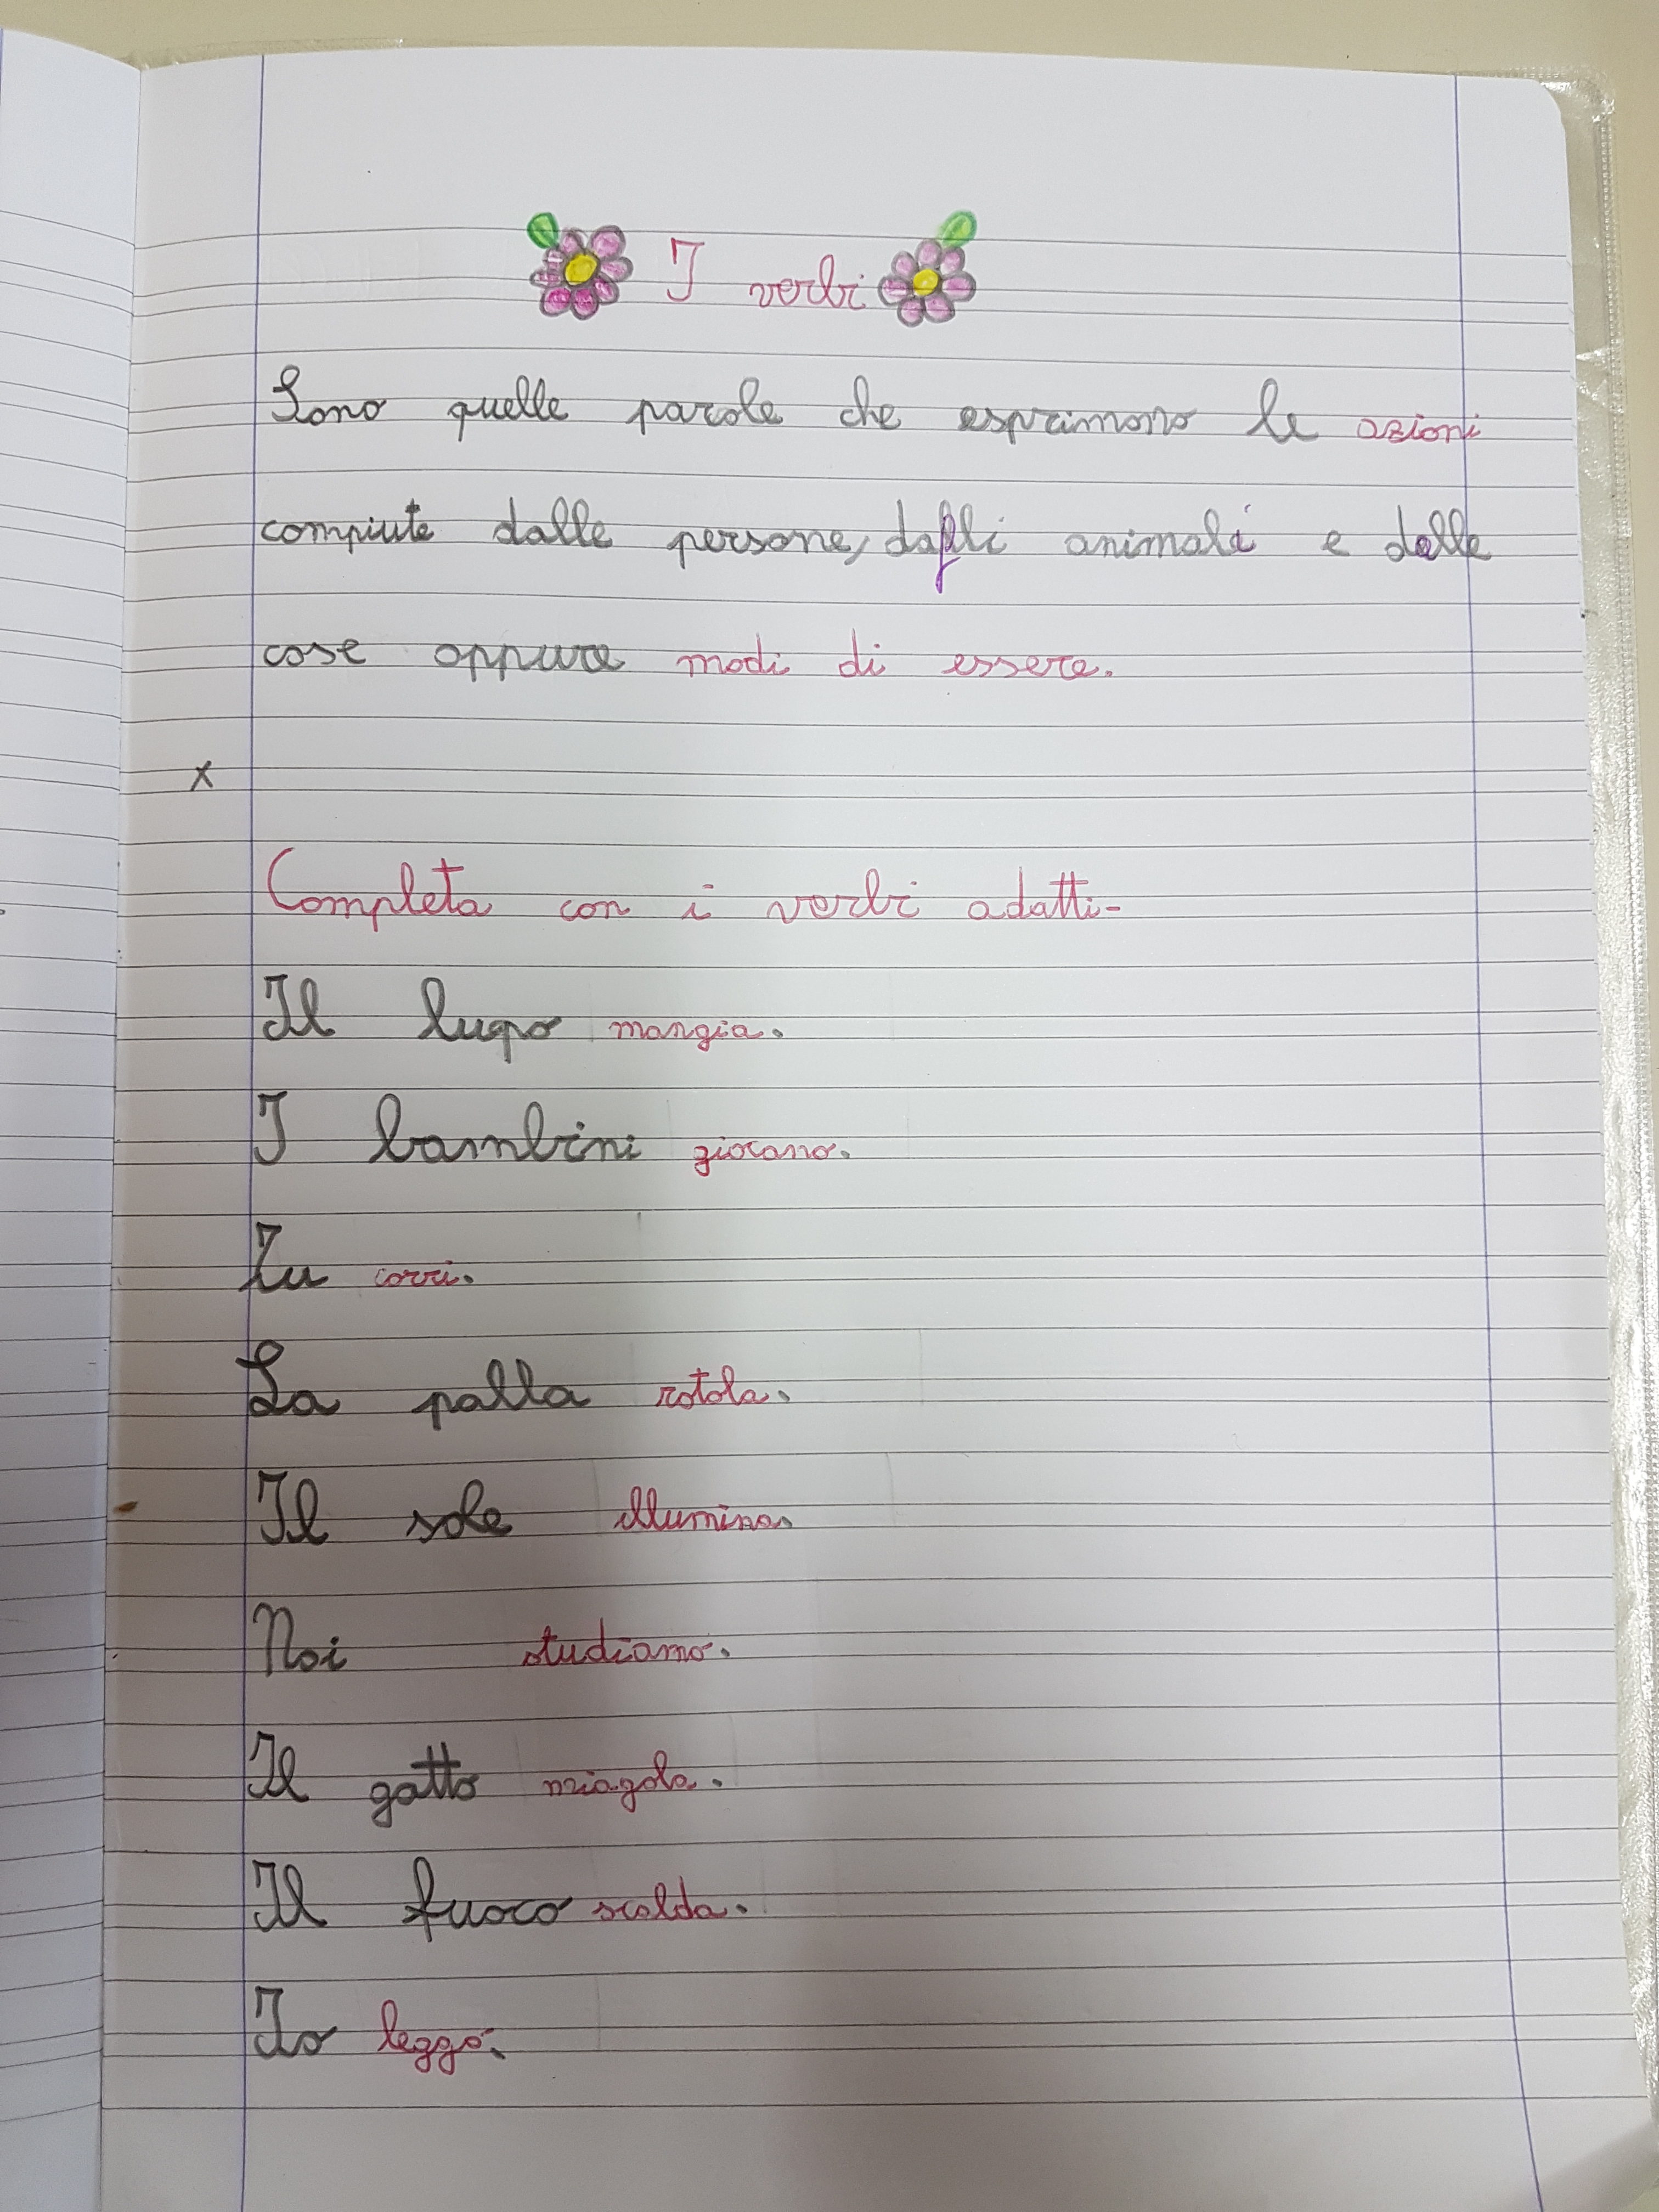 I verbi
Sono quelle parole che esprimono le azioni
compiute dalle persone, dagli animali e dalle
cose oppure modi di essere.
x
Completa con i verbi adatti-
Il lupo mangia.
I bambini giocano.
Tu corri.
La palla rotola.
Il sole illumina.
Noi studiamo.
Il gatto miagola.
Il fuoco scalda.
Io leggo.